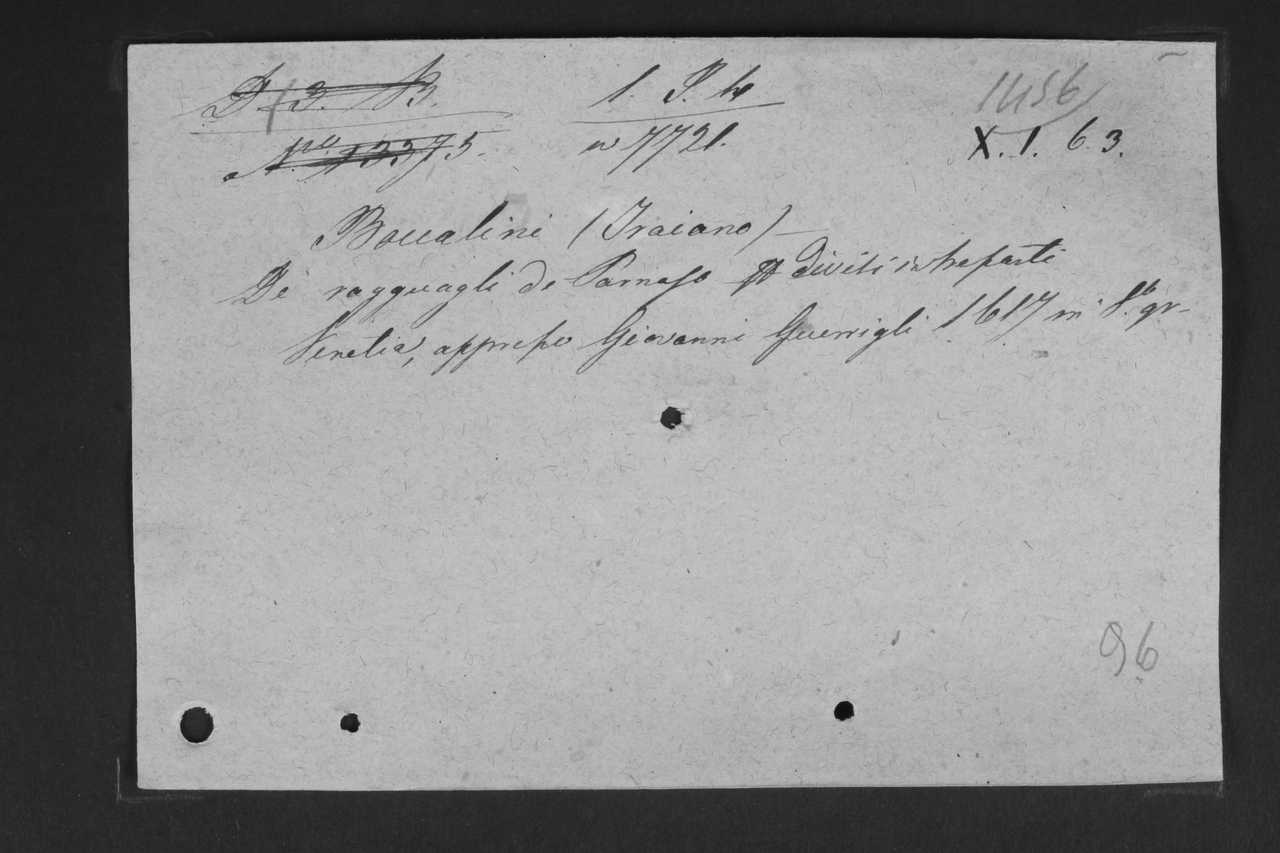 D 3. B. 1. P. 4 1456
Nro. 13375. n 7721. X. 1. 6. 3.
Boccalini (Traiano)
De ragguagli de Parnaso divisi in tre parti
Venetia, appresso Giovanni Guerrigli 1617 in 8.o gr-
96